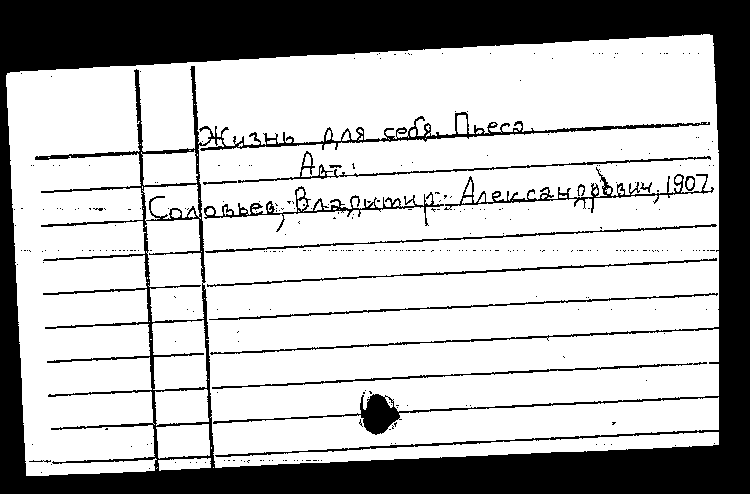 Жизнь для себя. Пьеса.
Авт.:
Соловьев, Владимир Александрович, 1907.